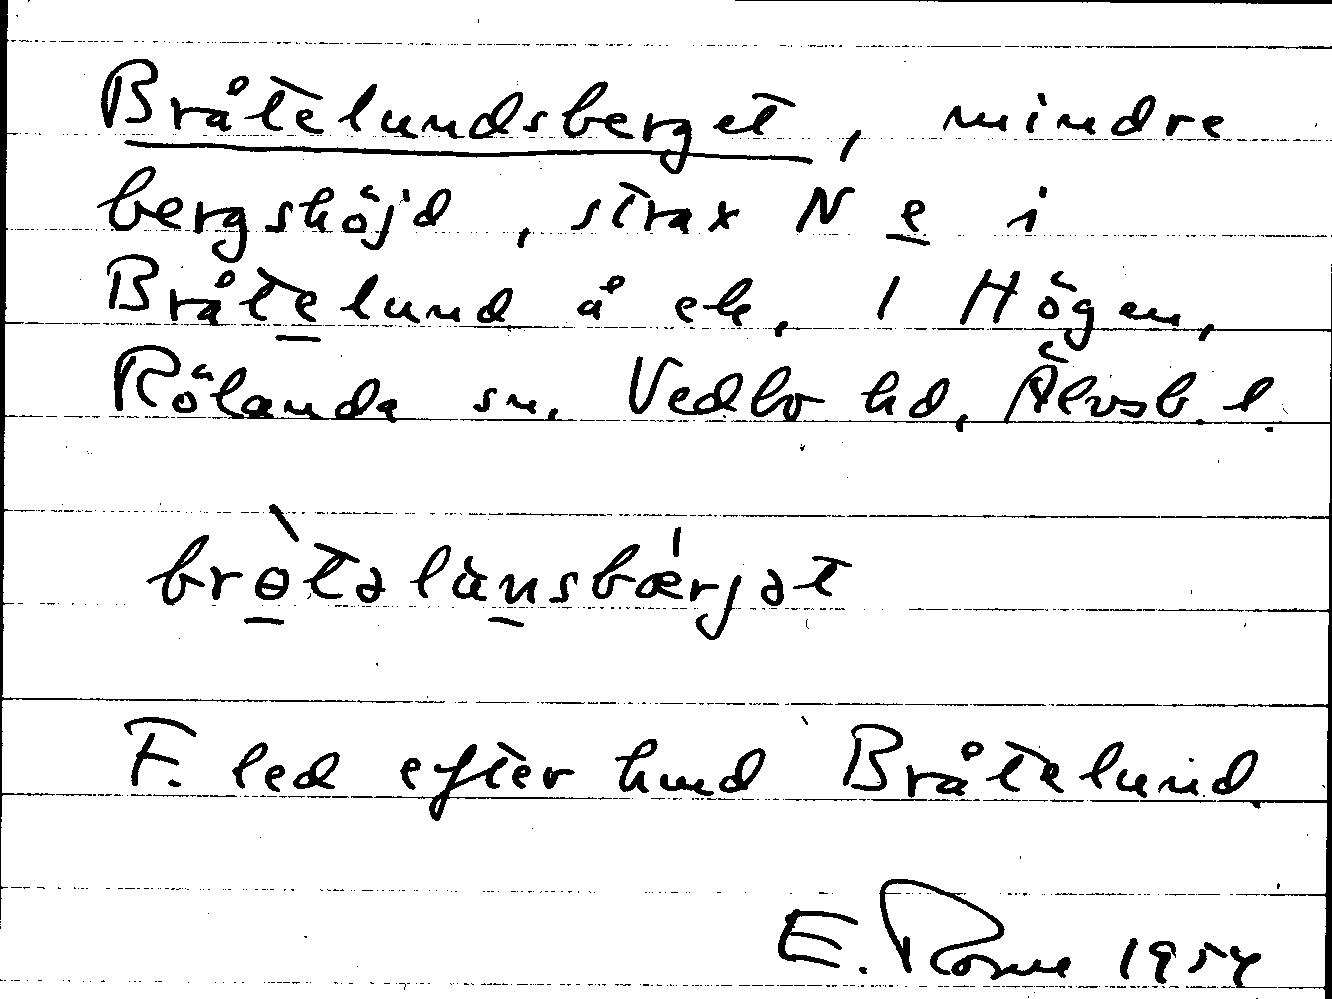 Bråtelundsberget, mindre
bergshöjd, strax N e i
Bråtelund å ek. 1 Högen,
Rölanda sn. Vedbo hd, Älvsb. l.
brètəlànsbǽrjət
F. led efter hmd Bråtelund.
E. 1954